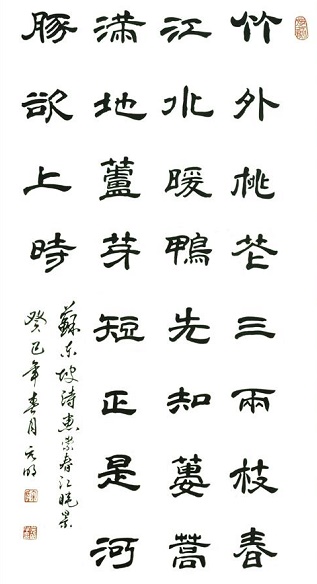 竹外桃花三兩枝春
江水暖鴨先知蔞蒿
滿地蘆芽短正是河
豚欲上時
蘇东坡诗惠崇春江晚景
癸巳年春月